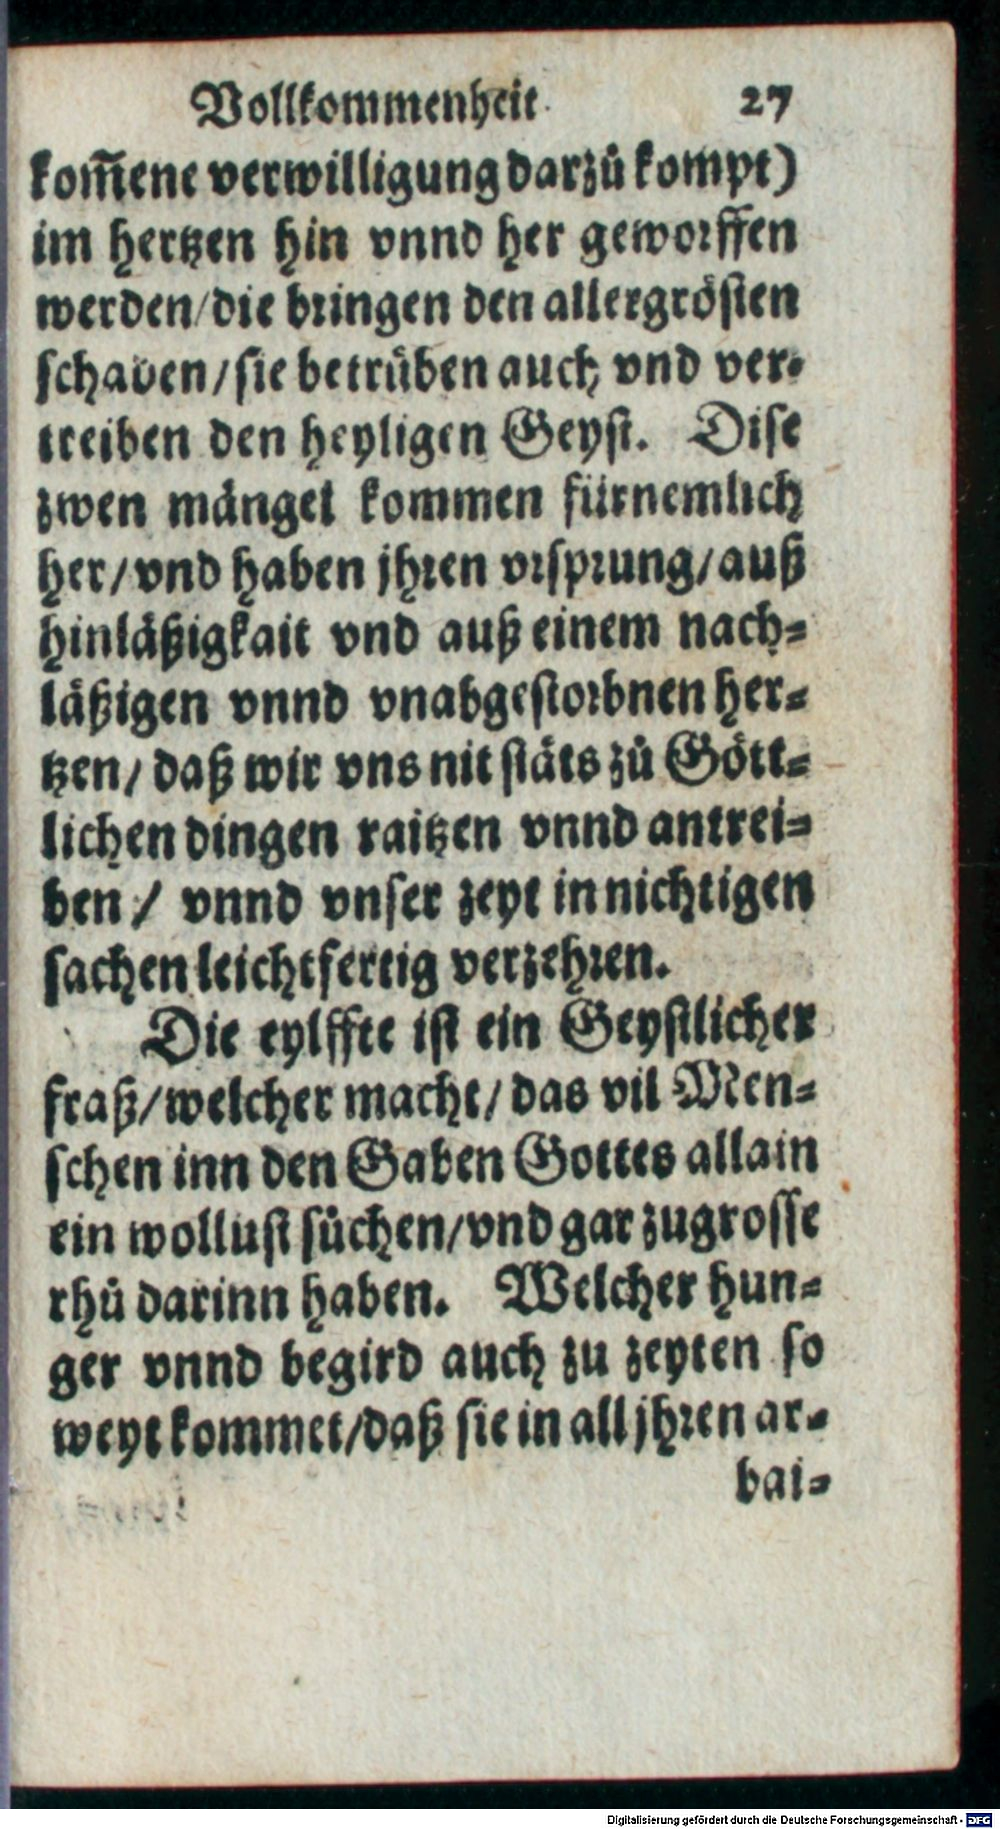 Vollkommenheit. 27
kom̄ene verwilligung darzů kompt)
im hertzen hin vnnd her geworffen
werden/die bringen den allergrösten
schaden/sie betrüben auch vnd ver-
treiben den heyligen Geyst. Dise
zwen mängel kommen fürnemlich
her/vnd haben jhren vrsprung/auß
hinläßigkait vnd auß einem nach-
läßigen vnnd vnabgestorbnen her-
tzen/daß wir vns nit stäts zů Gött-
lichen dingen raitzen vnnd antrei-
ben/ vnnd vnser zeyt in nichtigen
sachen leichtfertig verzehren.
Die eylffte ist ein Geystlicher
fraß/welcher macht/das vil Men-
schen inn den Gaben Gottes allain
ein wollust sůchen/vnd gar zugrosse
rhů darinn haben. Welcher hun-
ger vnnd begird auch zu zeyten so
weyt kommet/daß sie in all jhren ar-
bai-
Digitalisierung gefördert durch die Deutsche Forschungsgemeinschaft - DFG